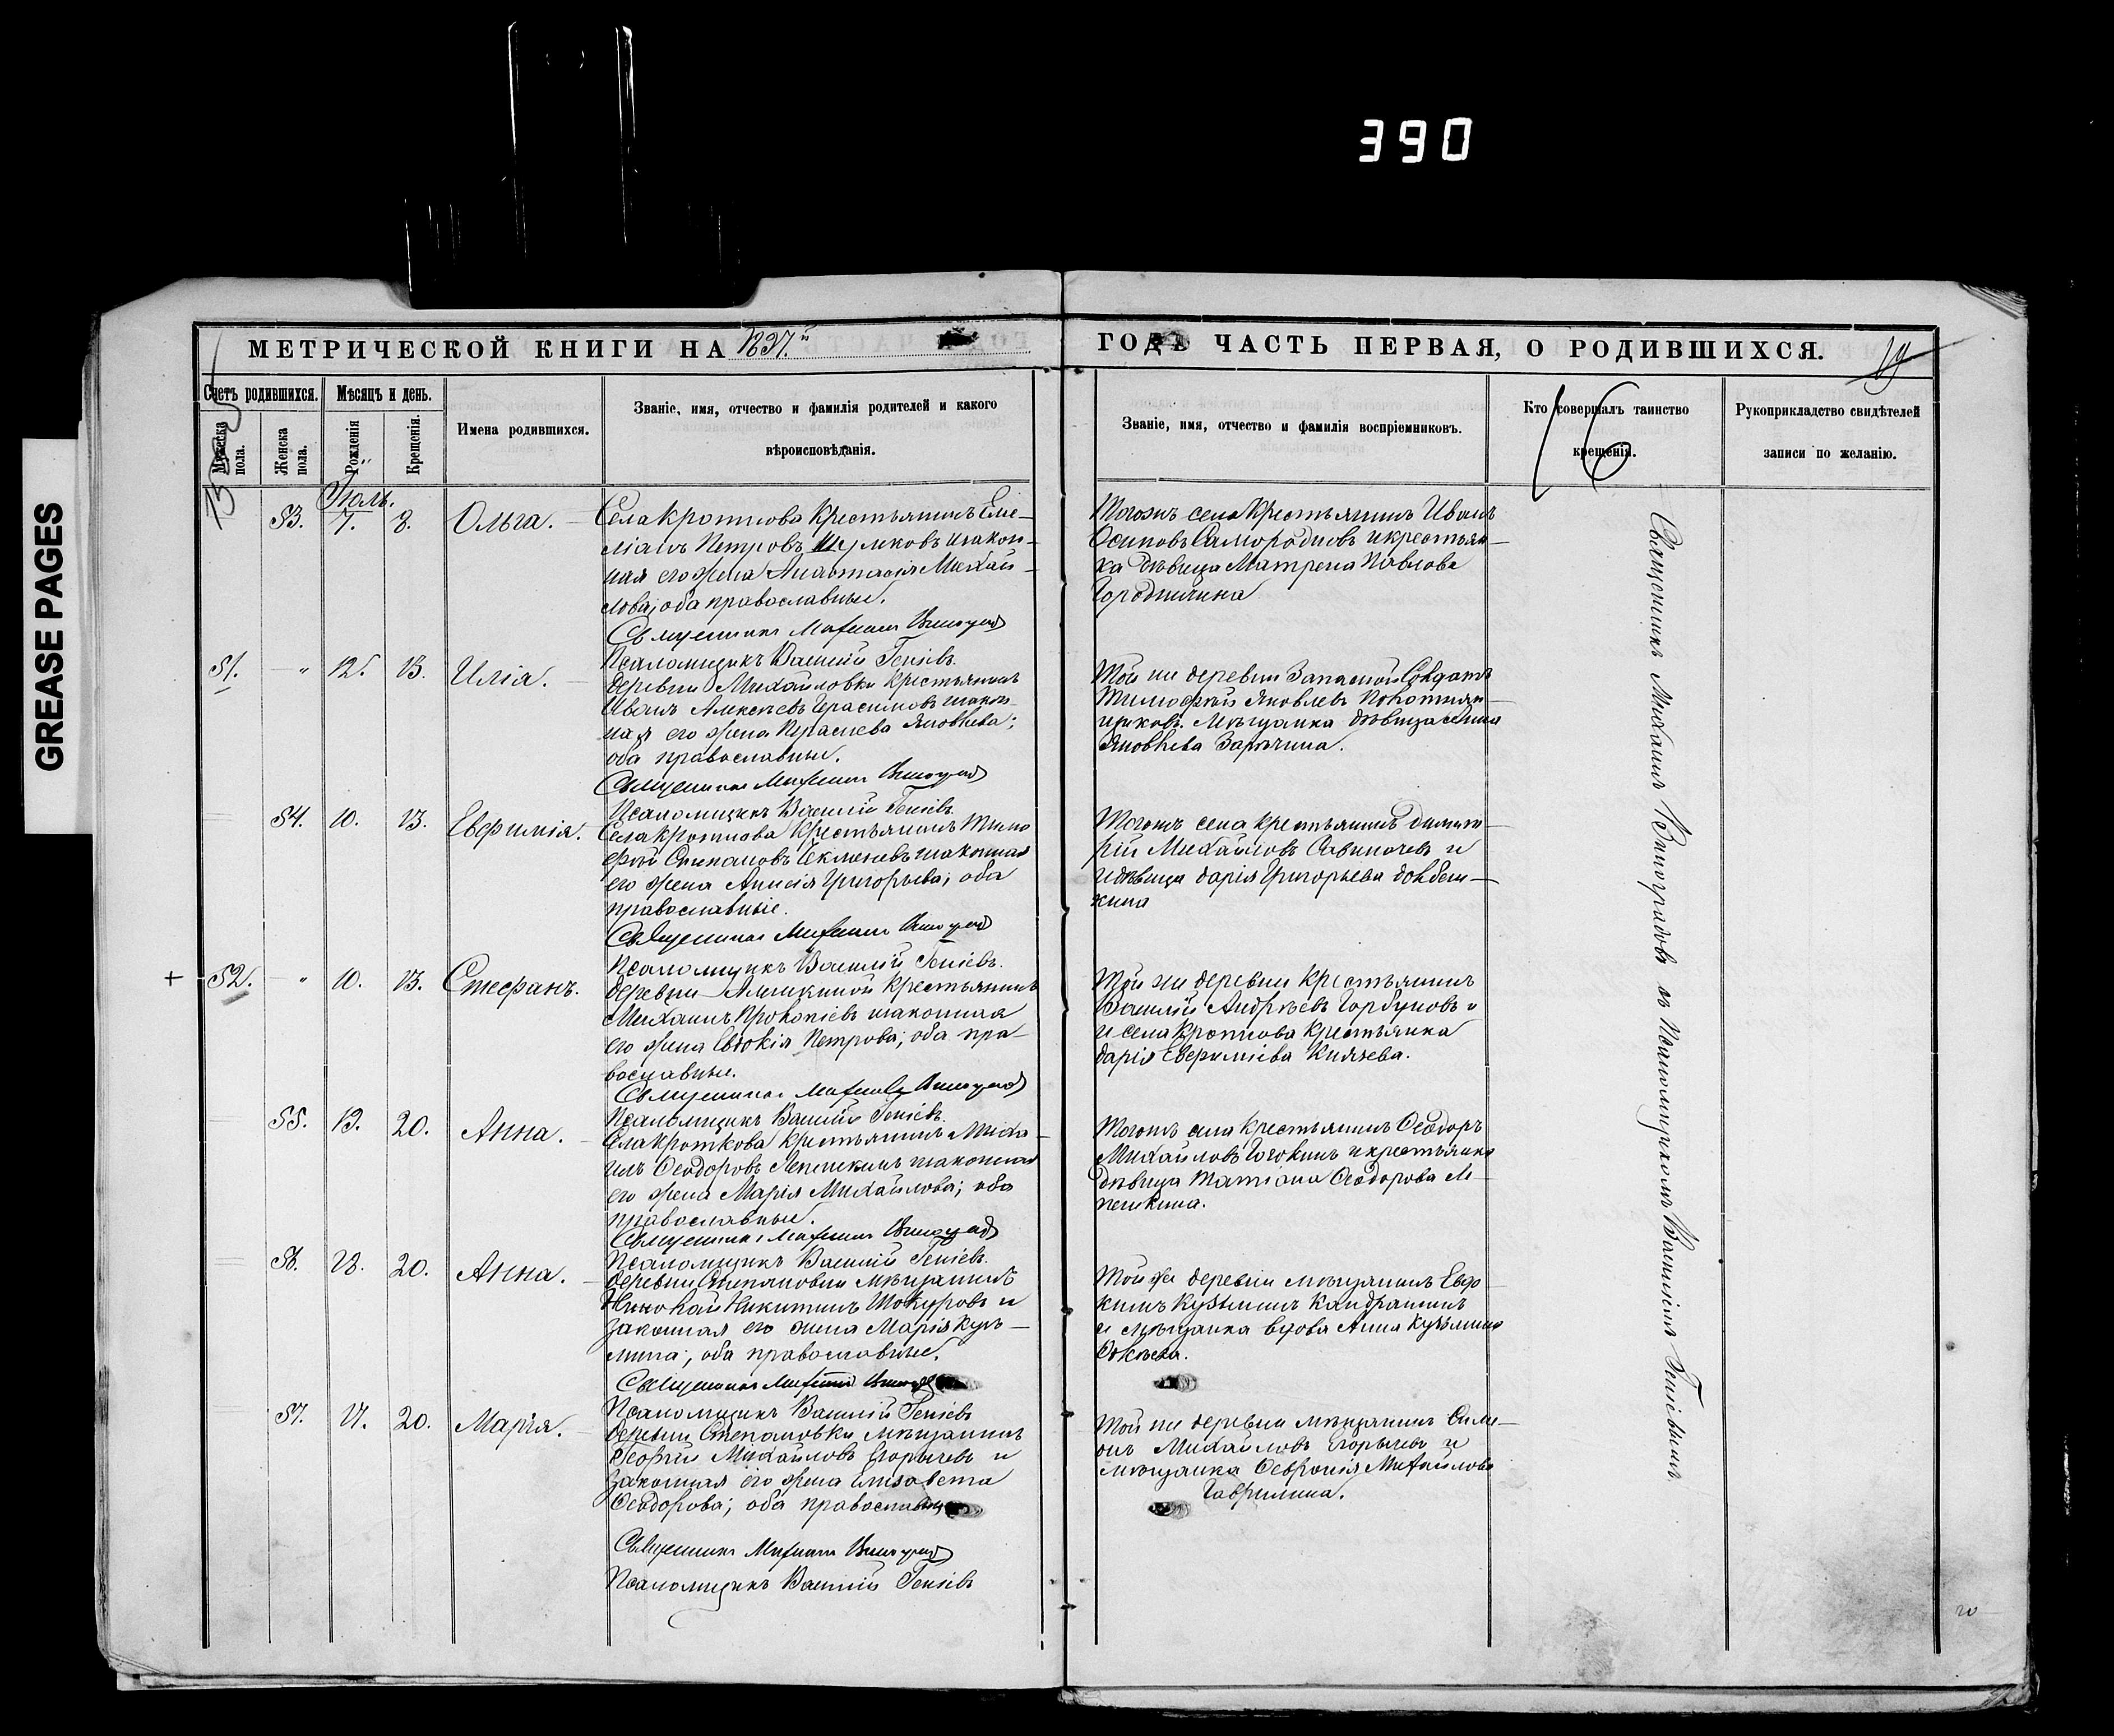 390
GREASE PAGES
МЕТРИЧЕСКОЙ КНИГИ НА 1897й
ГОДЪ ЧАСТЬ ПЕРВАЯ, О РОДИВШИХСЯ.
19
16
Счетъ родившихся.
Мужеска пола.
Женска пола.
Мѣсяцъ и день.
Рожденія
Крещенія.
Имена родившихся.
Званіе, имя, отчество и фамилія родителей и какого
вѣроисповѣданія.
Званіе, имя, отчество и фамилія воспріемниковъ.
Кто совершалъ таинство
крещенія.
Рукоприкладство свидѣтелей
записи по желанію.
Іюль.
53. 7. 8. Ольга.
Села Кроткова крестьянинъ Еме-
ліанъ Петровъ и закон-
ная его жена Анастасія Михай-
лова; оба православные.
Священникъ Михаилъ Виноградовъ
Псаломщикъ Василій Геніевъ.
Тогожъ села крестьянинъ Иванъ
Осиповъ Самородновъ и крестьян-
ка дѣвица Матрена Павлова
51. " 12. 13. Илія.
деревни Михайловки крестьянинъ
Иванъ Алексѣевъ Герасимовъ и закон-
ная его жена Яковлева;
оба православные.
Священникъ Михаилъ Виноградовъ
Псаломщикъ Василій Геніевъ.
Той же деревни Запасной Солдатъ
Тимофей Яковлевъ
мѣщанка дѣвица
Яковлева
54. 10. 13. Евфимія.
Села Кроткова крестьянинъ Тимо
фей Степановъ и законная
его жена Анисія Григорьева; оба
православные.
Священникъ Михаилъ Виноградовъ
Псаломщикъ Василій Геніевъ.
Тогожъ села крестьянинъ Димит-
рій Михайловъ и
и дѣвица Дарія Григорьева
+ 52. " 10. 13. Стефанъ.
деревни крестьянинъ
Михаилъ Прокопіевъ и законная
его жена Евдокія Петрова; оба пра-
вославные.
Священникъ Михаилъ Виноградовъ
Псаломщикъ Василій Геніевъ.
Той же деревни крестьянинъ
Василій Андрѣевъ Горбуновъ и
и села Кроткова крестьянка
Дарія Евфиміева Князева.
55. 13. 20. Анна.
Села Кроткова крестьянинъ Миха-
илъ Ѳеодоровъ и законная
его жена Марія Михайлова; оба
православные.
Священникъ Михаилъ Виноградовъ
Псаломщикъ Василій Геніевъ.
Тогожъ села крестьянинъ Ѳеодоръ
Михайловъ и крестьянка
дѣвица Татіана Ѳеодорова
56. 18. 20. Анна.
деревни Степановки мѣщанинъ
Николай Никитинъ и
законная его жена Марія Кузь-
мина; оба православные.
Священникъ Михаилъ Виноградовъ
Псаломщикъ Василій Геніевъ
Той же деревни мѣщанинъ Евдо
кимъ Кузьминъ Кандрашинъ
и мѣщанка вдова Анна Кузьмина
57. 17. 20. Марія.
деревни Степановки мѣщанинъ
Георгій Михайловъ Егорычевъ и
законная его жена Елизавета
Ѳеодорова; оба православн
Священникъ Михаилъ Виноградовъ
Псаломщикъ Василій Геніевъ
Той же деревни мѣщанинъ Симе-
онъ Михайловъ Егорычевъ и
мѣщанка Ѳевронія Михайлова
Гаврилина.
Священникъ Михаилъ Виноградовъ съ Псаломщикомъ Василіемъ Геніевымъ.
20